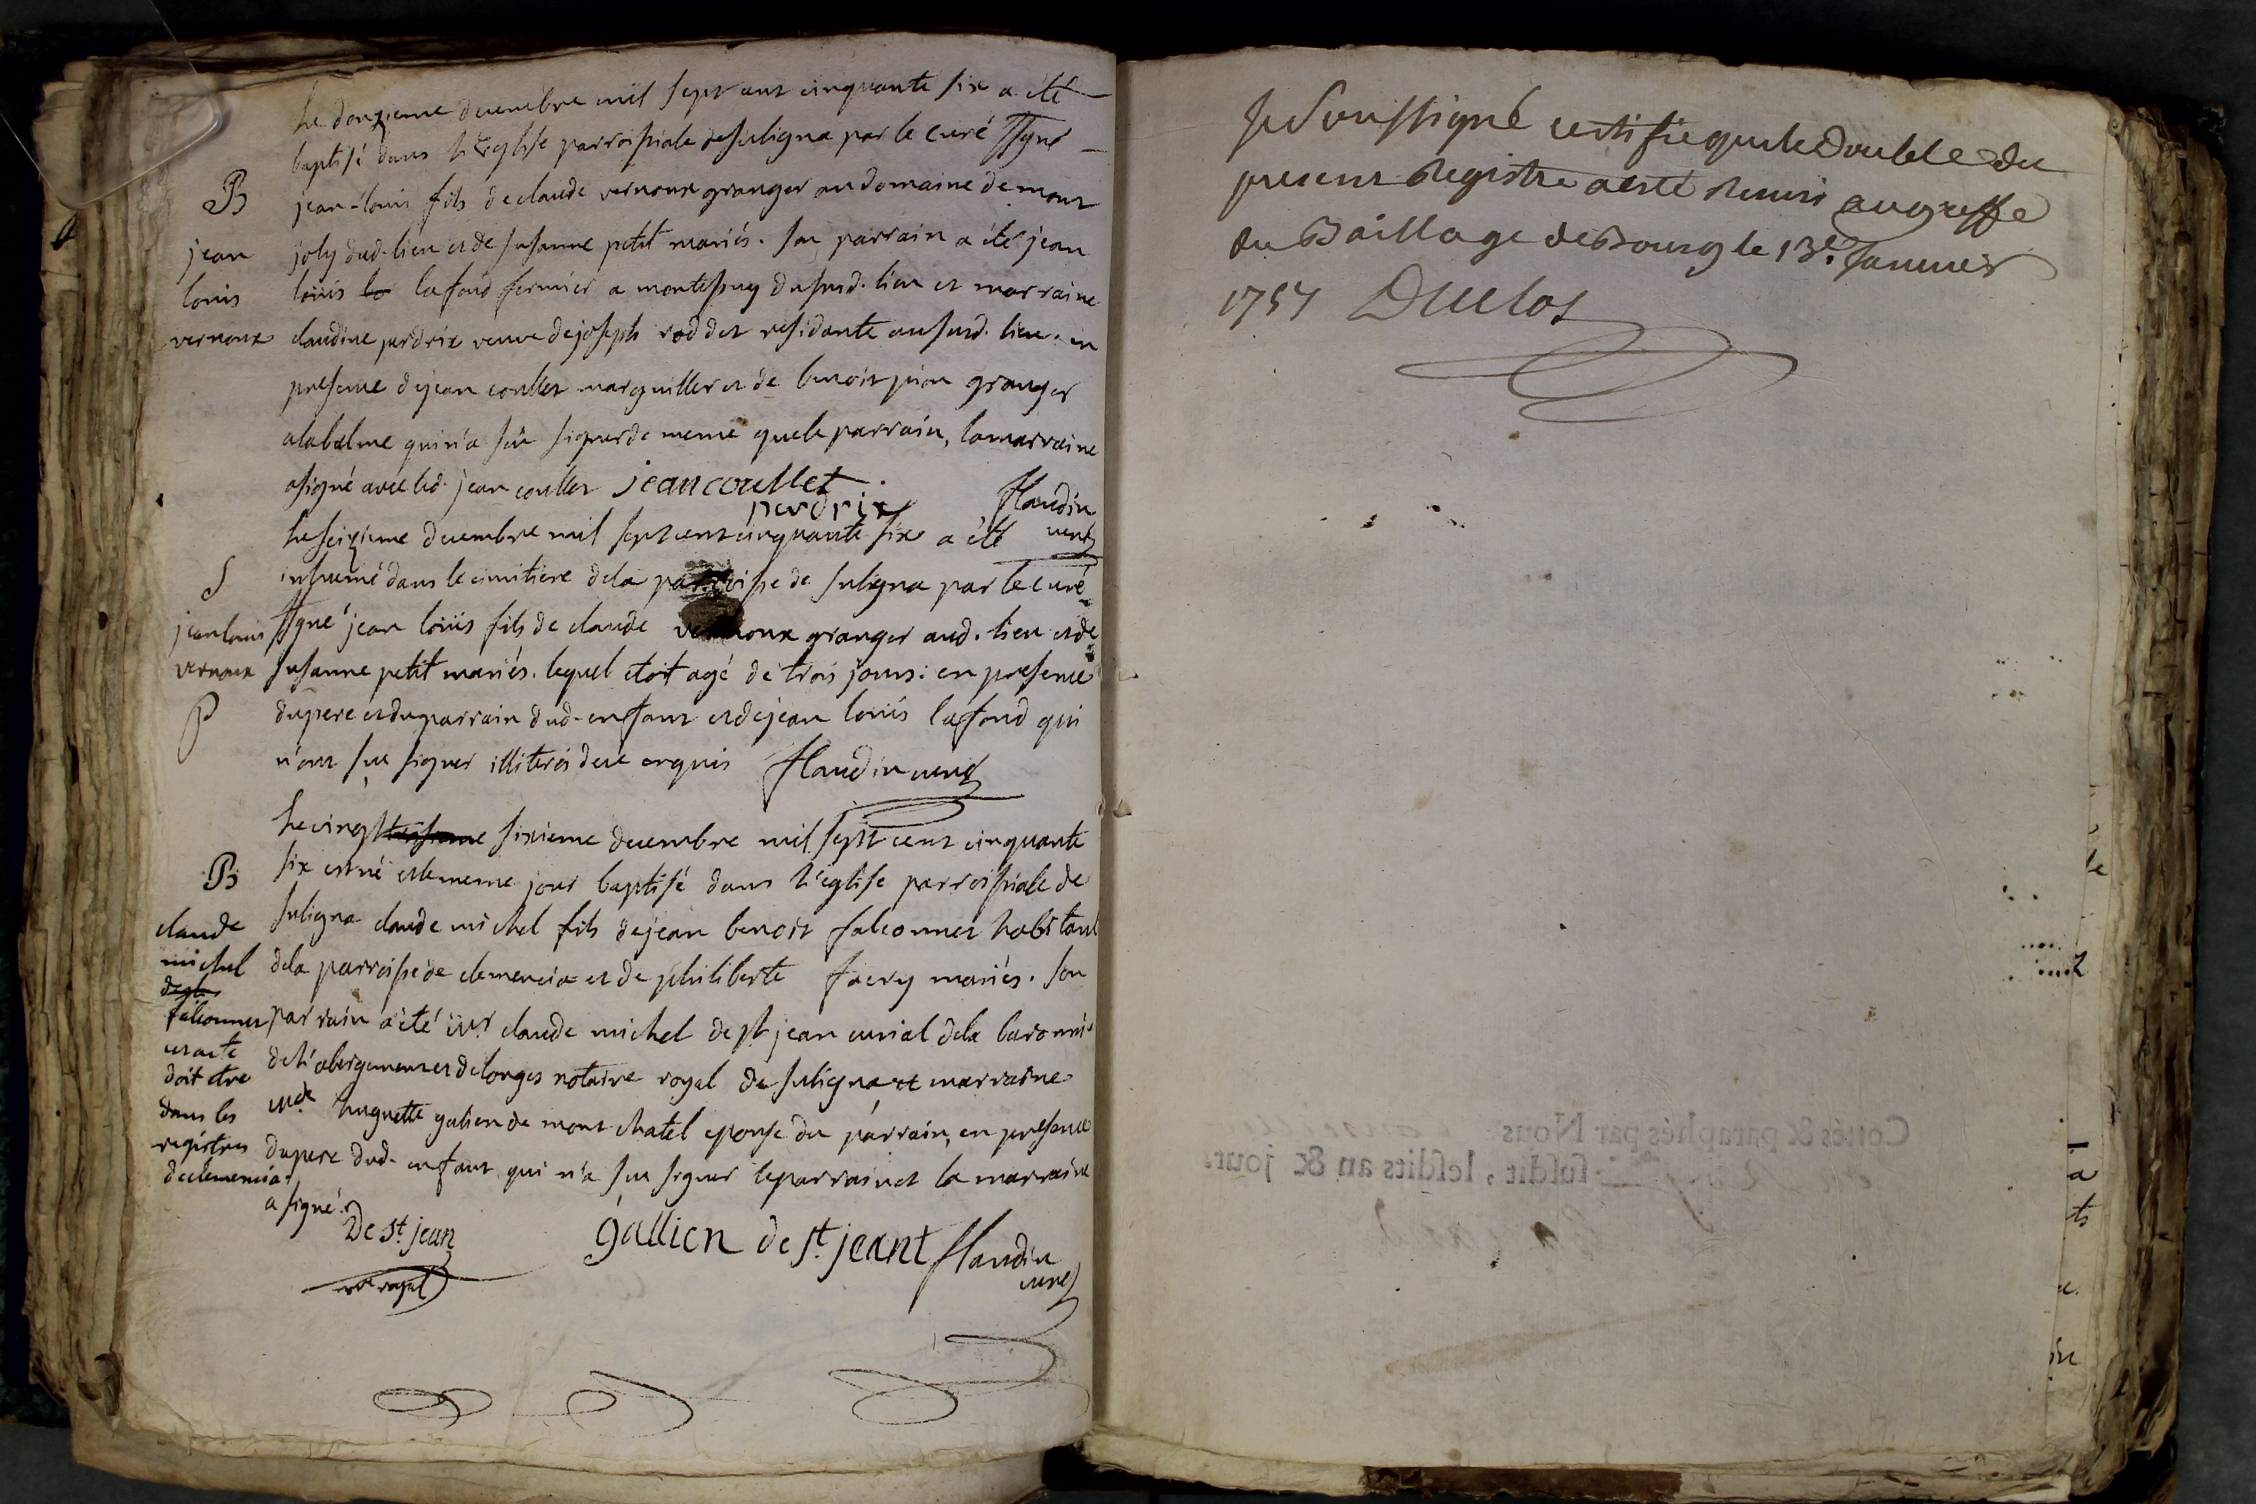 Le douzieme decembre mil sept cent cinquante six a été
baptisé dans l'Eglise parroissiale de suligna par le curé ssgné
B jean-louis fils de claude vernoux granger au domaine de mont
jean joly dud. lieu et de susanne petit mariés. son parrain a été jean
louis louis la lafond fermier a montespuy du susd. lieu et marraine
vernoux claudine perdrix veuve de joseph roddet residante au susd. lieu. en
presence de jean coullet marguiller et de benoit pion granger
a la balme qui n'a sçu signer de meme que le parrain, la marraine
a signé avec led. jean coullet jean coullet
perdrix flandin
curé
Le seizieme decembre mil sept cent cinquante six a été
S inhumé dans le cimitiere de la parroisse de suligna par le curé
jean louis ssgné jean louis fils de claude vernoux granger aud. lieu et de
vernoux susanne petit mariés. lequel etoit agé de trois jours: en presence
P du pere et du parrain dud. enfant et de jean louis lafond qui
n'ont sçu signer illiterés de ce enquis flandin curé
Le vingt sixieme decembre mil sept cent cinquante
B six est né et le meme jour baptisé dans l'eglise parroissiale de
claude suligna claude michel fils de jean benoit falconnet habitant
michel de la parroisse de clemencia et de philiberte faery mariés. son
falconnet parrain a été mr claude michel de st jean curial de la baronnie
cet acte de l'abergement et de longes notaire royal de suligna et marraine
doit etre
dans les mde huguette galien de mont chatel epouse du parrain, en presence
registres du pere dud. enfant qui n'a sçu signer le parrain et la marraine
de clemencia a signé.
De st. jean gallien de st. jeant flandin
nre royal curé
Je Soussigné certifie que le Double du
present Registre a esté Remis au greffe
du Baillage de Bourg le 13e. Janvier
1757 Duclos
Cottés & paraphés par Nous
susdit, lesdits an & jour.